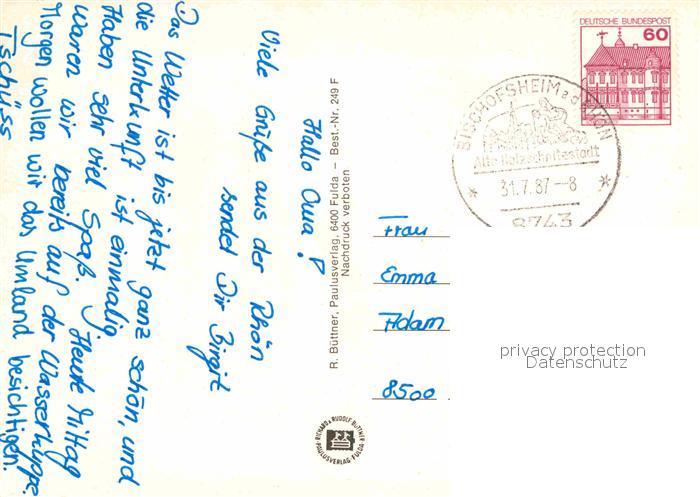 Hallo Oma!
Viele Grüße aus der Rhön
sendet Dir Birgit
Das Wetter ist bis jetzt ganz schön, und
die Unterkunft ist einmalig.
Haben sehr viel Spaß. Heute Mittag
waren wir bereits auf der Wasserkuppe.
Morgen wollen wir das Umland besichtigen.
Tschüss
R. Büttner, Paulusverlag, 6400 Fulda – Best.-Nr. 249 F
Nachdruck verboten
DEUTSCHE BUNDESPOST
60
BISCHOFSHEIM a d RHÖN
Alte Holzschnitzstadt
31.7.87-8
8743
Frau
Emma
Adam
8500
privacy protection
Datenschutz
RICHARD & RUDOLF BÜTTNER
PAULUSVERLAG FULDA